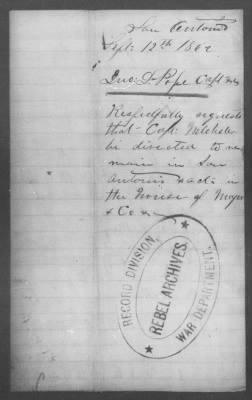 San Antonio
Sept. 12th 1862
Jno: D. Pope Capt &c
Respectfully requests
that Capt:
be directed to re
main in San
Antonio & act in
the House of
& Co &c
RECORD DIVISION,
REBEL ARCHIVES
WAR DEPARTMENT.